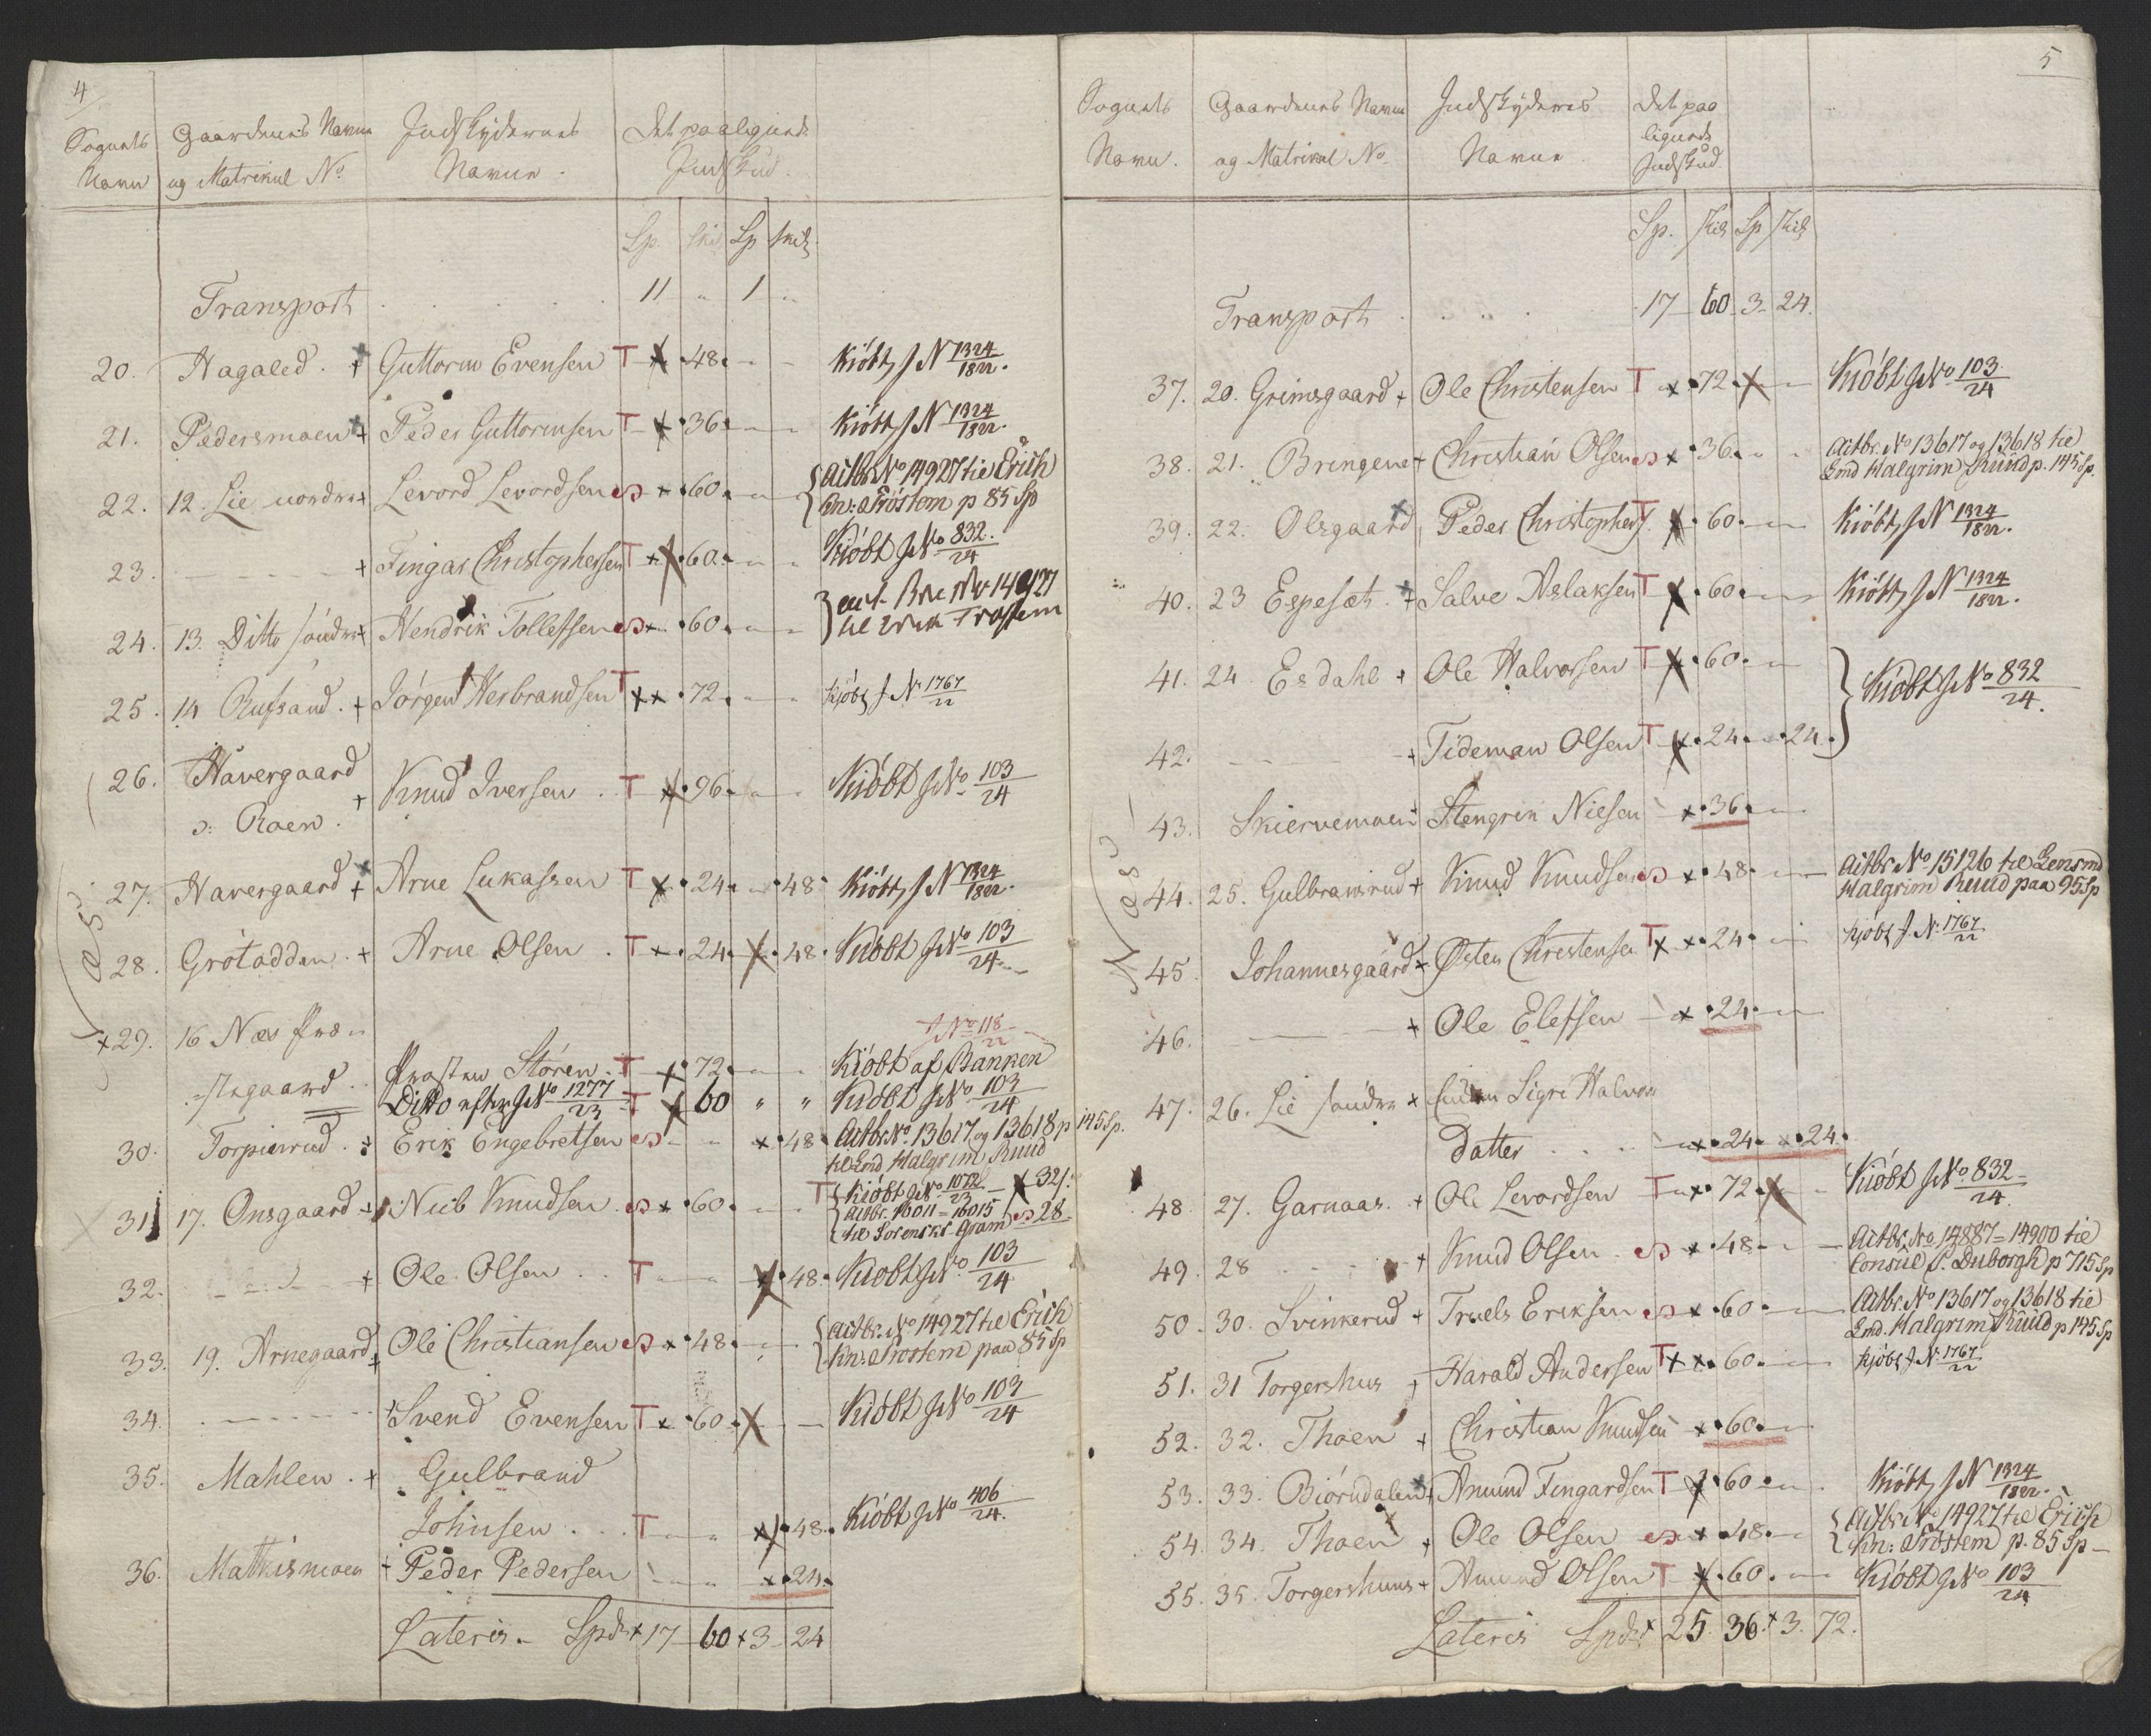 4
Sognets Navn | Gaardenes Navne og Matrikul No. | Indskydernes Navne. | Det paaligende Indskud.
Sp. | skil | Sp | skil.
Transport . . . . . 11 " 1 "
20. Hagaled. + Guttorm Evensen T x 48. - - Kiöbt J N 1324/1822.
21. Pedersmoen + Peder Guttormsen T x 36. - - Kiöbt J N 1324/1822.
22. 12. Lie nordre + Levord Levordsen S x 60. - - { Actbr. No 14927 til Erich
Kn: Tröstem p 85 Sp
23. - - - + Fingar Christophersen T x 60. - - Kiöbt J No 832./24
24. 13. Ditto söndre + Hendrik Tollefsen S x 60. - - } act. Br No 14927
til Erich Trostem
25. 14 Rufsand. + Jörgen Herbrandsen T x x 72. - - kjöbt J N 1767/22
26. Havergaard
ɔ: Roen. + Knud Iversen . T x 96. - - Kiöbt J No. 103/24
27. Havergaard + Arne Lukassen T x 24. - 48 Kiöbt J N 1324/1822.
28. Grötadden. + Arne Olsen . T x 24. x 48. Kiöbt J No 103/24
Næs
x 29. 16 Næs Præ=
J No 118/22
=stegaard . . Provsten Stören. T x 72. - - Kiöbt af Banken
Ditto efter J No 1277/23 T x 60 " " Kiöbt J No. 103/24
30. Torpierrud. + Erik Engebretsen S - - x 48. Actbr No. 13617 og 13618 p 145 Sp.
til Lnd Halgrim Ruud
31. 17. Onsgaard + Niels Knudsen. S x 60. - - T { Kiöbt J No 1072/23 - x 32/:
Actbr. 16011 = 16015
til Sorenskr. Gram S 28
32. - - - + Ole Olsen . . T - - x 48. Kiöbt J No. 103/24
33. 19. Arnegaard + Ole Christiansen S x 48. - - { Actbr. No 14927 til Erich
Kn: Tröstem paa 85 Sp
34. - - - + Svend Evensen T x 60. x - - Kiöbt J No 103/24
35. Mahlen. + Gulbrand
Johnsen . . . T - - x 48. Kiöbt J No 406/24.
36. Mathismoen + Peder Pedersen - - x 24.
Lateris. Spdr x 17 60 x 3 - 24
5
Sognets Navn. | Gaardenes Navne og Matrikul No. | Indskyderes Navne. | Det paa ligende Indskud
Sp. | skil | Sp | skil
Transport . . . . 17 60 3 24.
37. 20. Grimsgaard + Ole Christensen T x 72. x - Kiöbt J No 103/24
38. 21. Bringene + Christian Olsen S x 36. - - Actbr. No 13617 og 13618 til
Lnd Halgrim Ruud p. 145 Sp.
39. 22. Olsgaard Peder Christophers. T x 60. - - Kiöbt J N 1324/1822.
40. 23 Espesæt. + Salve Aslaksen T x 60. - - Kiöbt J N 1324/1822.
41. 24 Esdahl + Ole Halvorsen T x 60. - - } Kiöbt J No 832/24.
42. - - - + Tideman Olsen T x 24. - 24.
43. Skiervemoen Stengrim Nielsen - x 36. -
Næs
44. 25. Gulbransrud + Knud Knudsen S x 48. - - Actbr No 15126 til Lensmd
Halgrim Ruud paa 95 Sp
45. Johannesgaard + Östen Christensen T x x 24. - kjöbt J. N. 1767/22
46. - - - + Ole Elefsen - x 24. -
47. 26. Lie söndre + Enken Sigri Halvors
Datter . . . . - x 24. x 24.
48. 27. Garnaas. + Ole Levordsen T x 72. x - - Kiöbt J No 832/24.
49. 28 - - - + Knud Olsen. S x 48. - - Actbr. No 14887 = 14900 til
Consul P. Duborgh p 715 Sp
50. 30. Svinkerud + Truels Eriksen S x 60. - - Actbr. No 13617 og 13618 til
Lnd. Halgrim Ruud p 145 Sp
51. 31 Torgershus + Harald Andersen T x x 60. - - kjöbt J. N. 1767/22
52. 32. Thoen + Christian Knudsen - x 60. -
53. 33. Biörndalen + Amund Fingardsen T x 60. - Kiöbt J N 1324/1822.
54. 34. Thoen + Ole Olsen S x 48. - { Actbr No 14927 til Erich
Kn: Tröstem p. 85 Sp
55. 35. Torgershuus + Amund Olsen T x 60. - - Kiöbt J No 103/24
Lateris Spdr x 25. 36. x 3. 72.